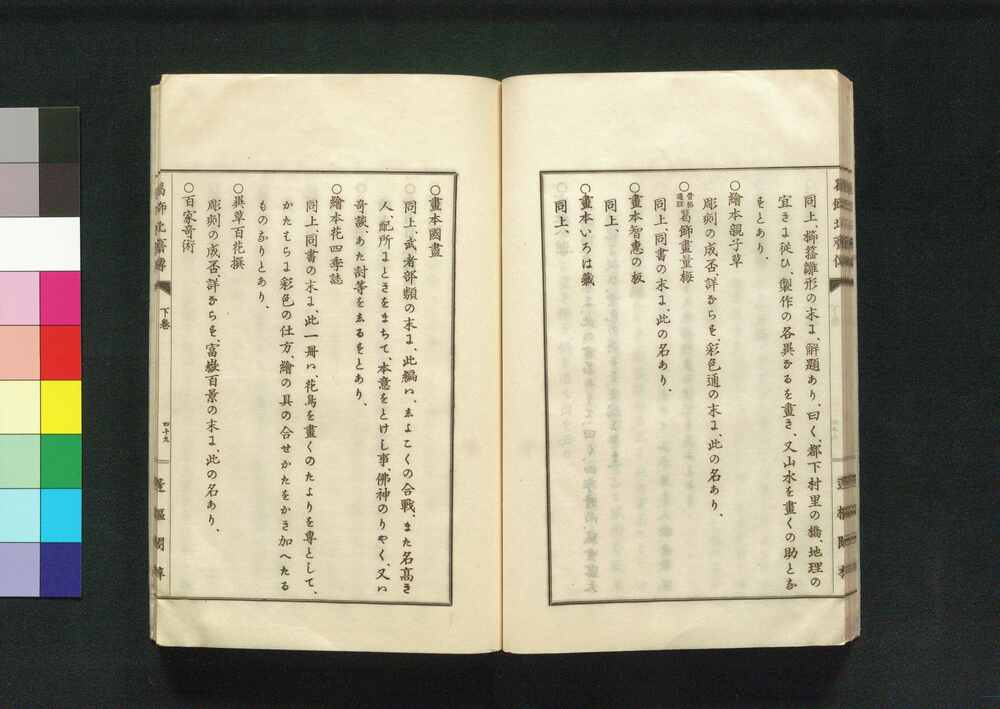 同上、櫛䈇雛形の末に、解題あり、曰く、都下村里の橋、地理の
宜きに従ひ、製作の各異なるを畫き、又山水を畫くの助とな
をとあり、
○繪本親子草
彫刻の成否、詳ならを、彩色通の末に、此の名あり、
葛飾畫量極
同上、同書の末に、此の名あり、
○畫本智惠の板
同上、
○畫本いろは藏
同上、
○畫本國畫
同上、武者部類の末に、此編ハ、えよこくの合戰、また名高き
人、配所にときをまちて、本意をとけし事、佛神のりやく、又ハ
奇談、あた討等をえるをとあり、
○繪本花四季誌
同上、同書の末に、此一冊ハ、花鳥を畫くのたよりを專として、
かたはらに彩色の仕方、繪の具の合せかたをかき加へたる
ものなりとあり、
○異草百花撰
彫刻の成否、詳ならを、富嶽百景の末に、此の名あり、
○百家奇術
下卷
四十九